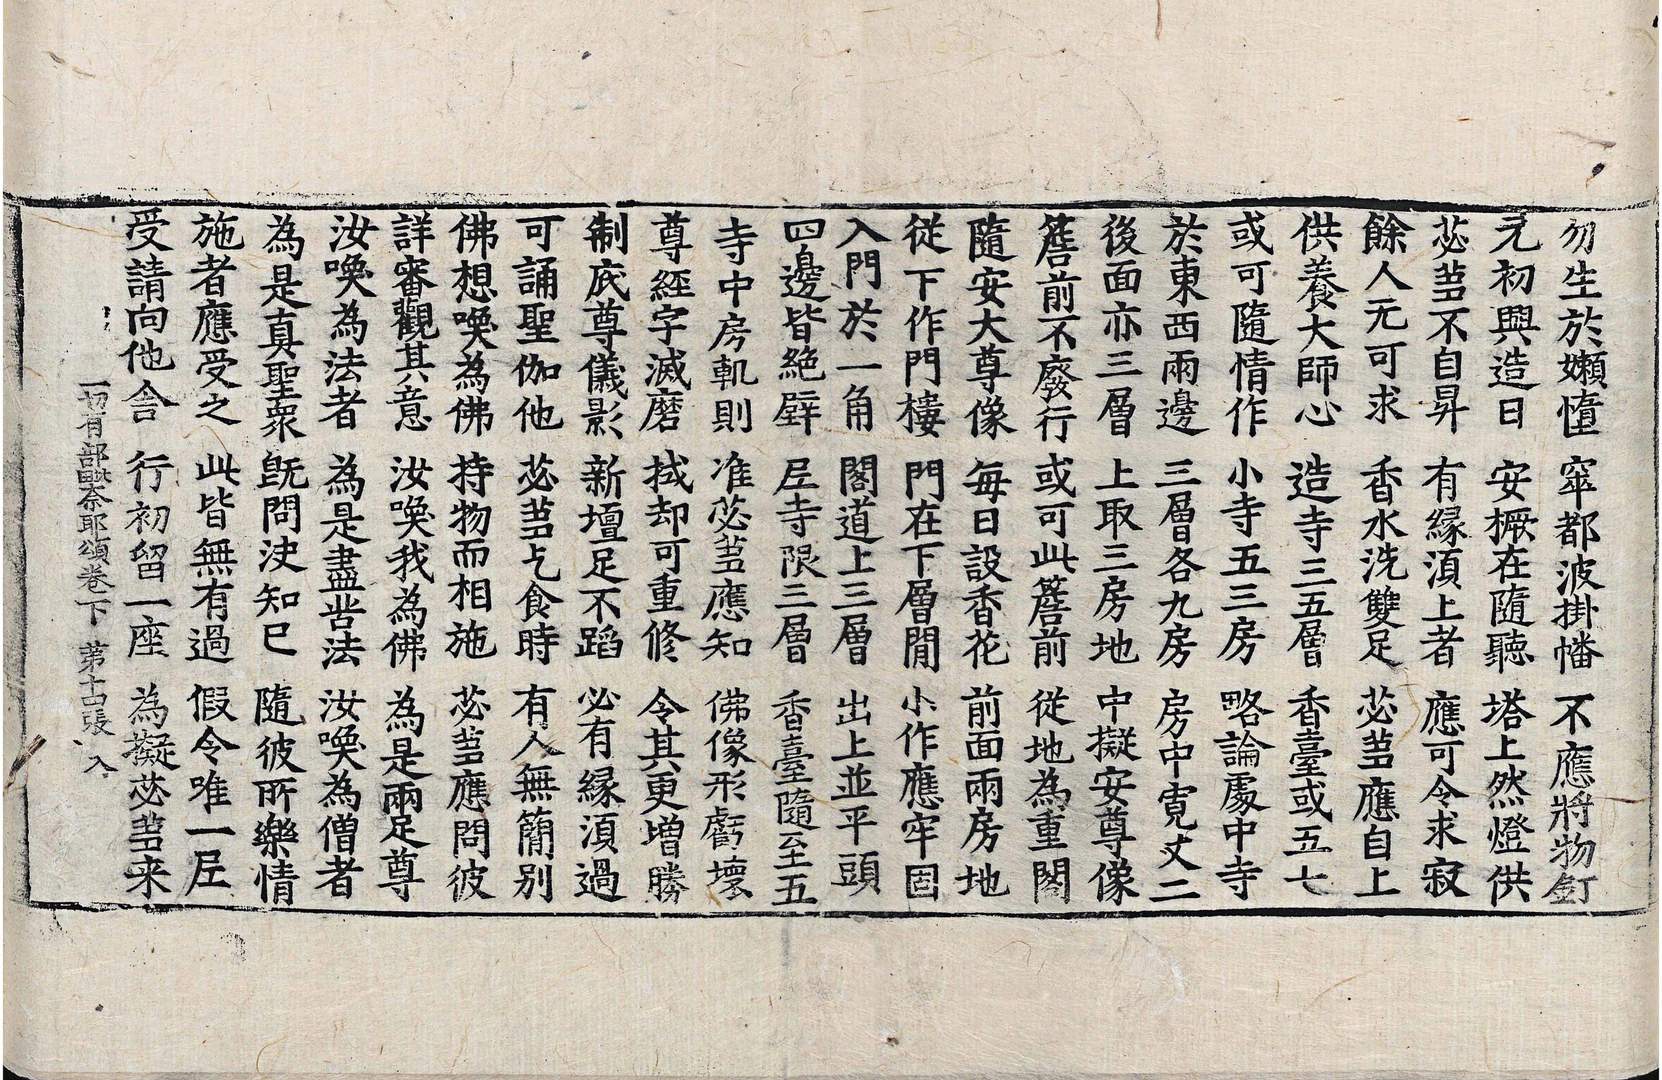 勿生於嬾憜 窣都波掛幡 不應將物釘
元初興造日 安橛在隨聽 塔上然燈供
苾芻不自昇 有縁湏上者 應可令求寂
餘人元可求 香水洗雙足 苾芻應自上
供養大師心 造寺三五層 香臺或五七
或可隨情作 小寺五三房 略論處中寺
於東西兩邊 三層各九房 房中寛丈二
後面亦三層 上取三房地 中擬安尊像
簷前不廢行 或可此簷前 從地為重閣
隨安大尊像 每日設香花 前面兩房地
從下作門樓 門在下層間 小作應牢固
入門於一角 閣道上三層 出上並平頭
四邊皆絶壁 㞐寺限三層 香臺隨至五
寺中房軌則 准苾芻應知 佛像形虧壞
尊經字滅磨 拭却可重修 令其更增勝
制底尊儀影 新壇足不蹈 必有縁湏過
可誦聖伽他 苾芻乞食時 有人無簡別
佛想喚為佛 持物而相施 苾芻應問彼
詳審觀其意 汝喚我為佛 為是兩足尊
汝喚為法者 為是盡苦法 汝喚為僧者
為是真聖衆 旣問決知已 隨彼所樂情
施者應受之 此皆無有過 假令唯一㞐
受請向他舍 行初留一座 為擬苾芻来
一切有部毗奈耶頌卷下 第十四張 入